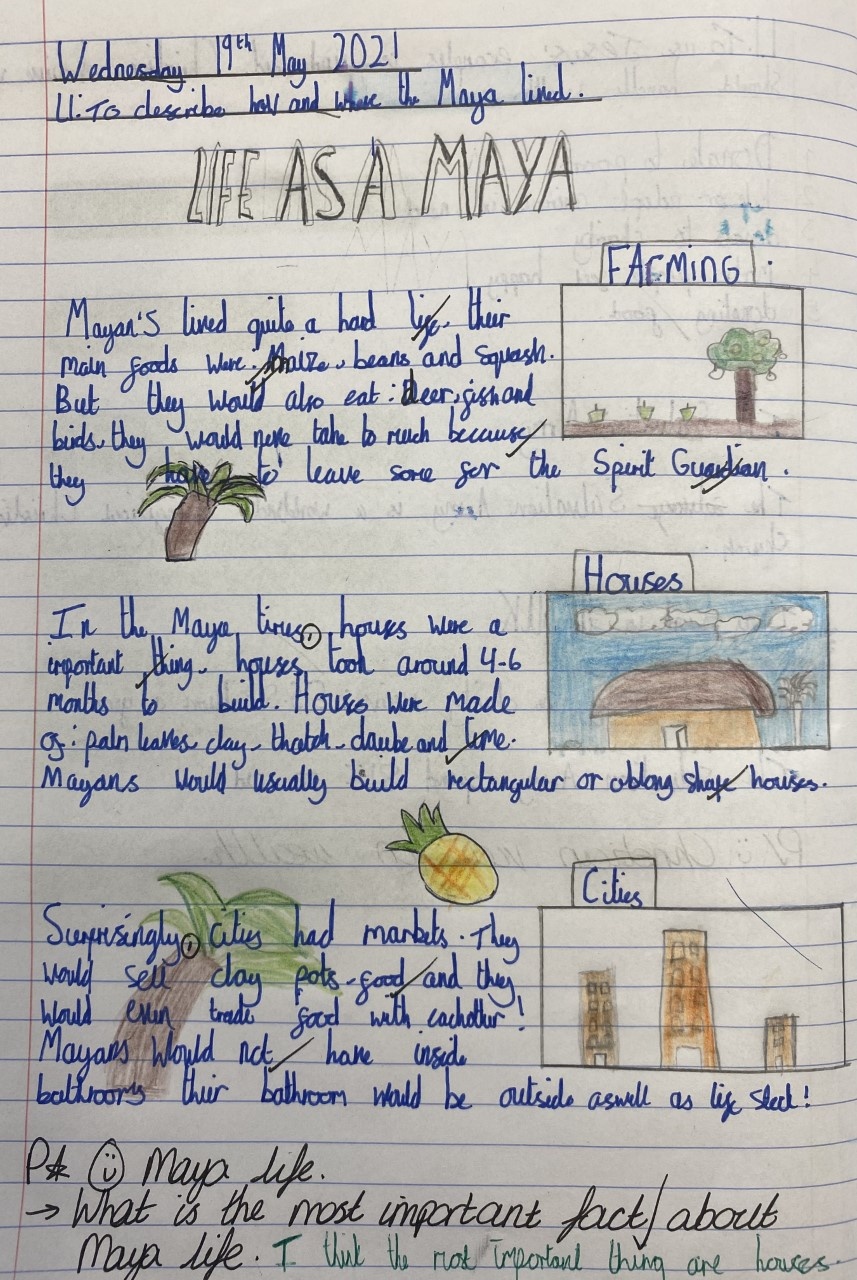 Wednesday 19th May 2021
LI: To describe how and where the Maya lived.
LIFE AS A MAYA
FArMING
Mayan's lived quite a hard life, their
main foods were: Maize, beans and squash.
But they would also eat: Deer, fish and
birds, they would never take to much because
they have to leave some for the Spirit Guardian.
Houses
In the Maya times, houses were a
important thing, houses took around 4-6
months to build. Houses were made
of: palm leaves, clay, thatch, daube and lime.
Mayans would usually build rectangular or oblong shape houses.
Cities
Surprisingly, Cities had markets. They
would sell clay pots, food and they
would even trade food with eachother!
Mayans would not have inside
bathrooms their bathroom would be outside aswell as life
P☆ ☺ Maya life.
→ What is the most important fact about
Maya life. I think the most important thing are houses.